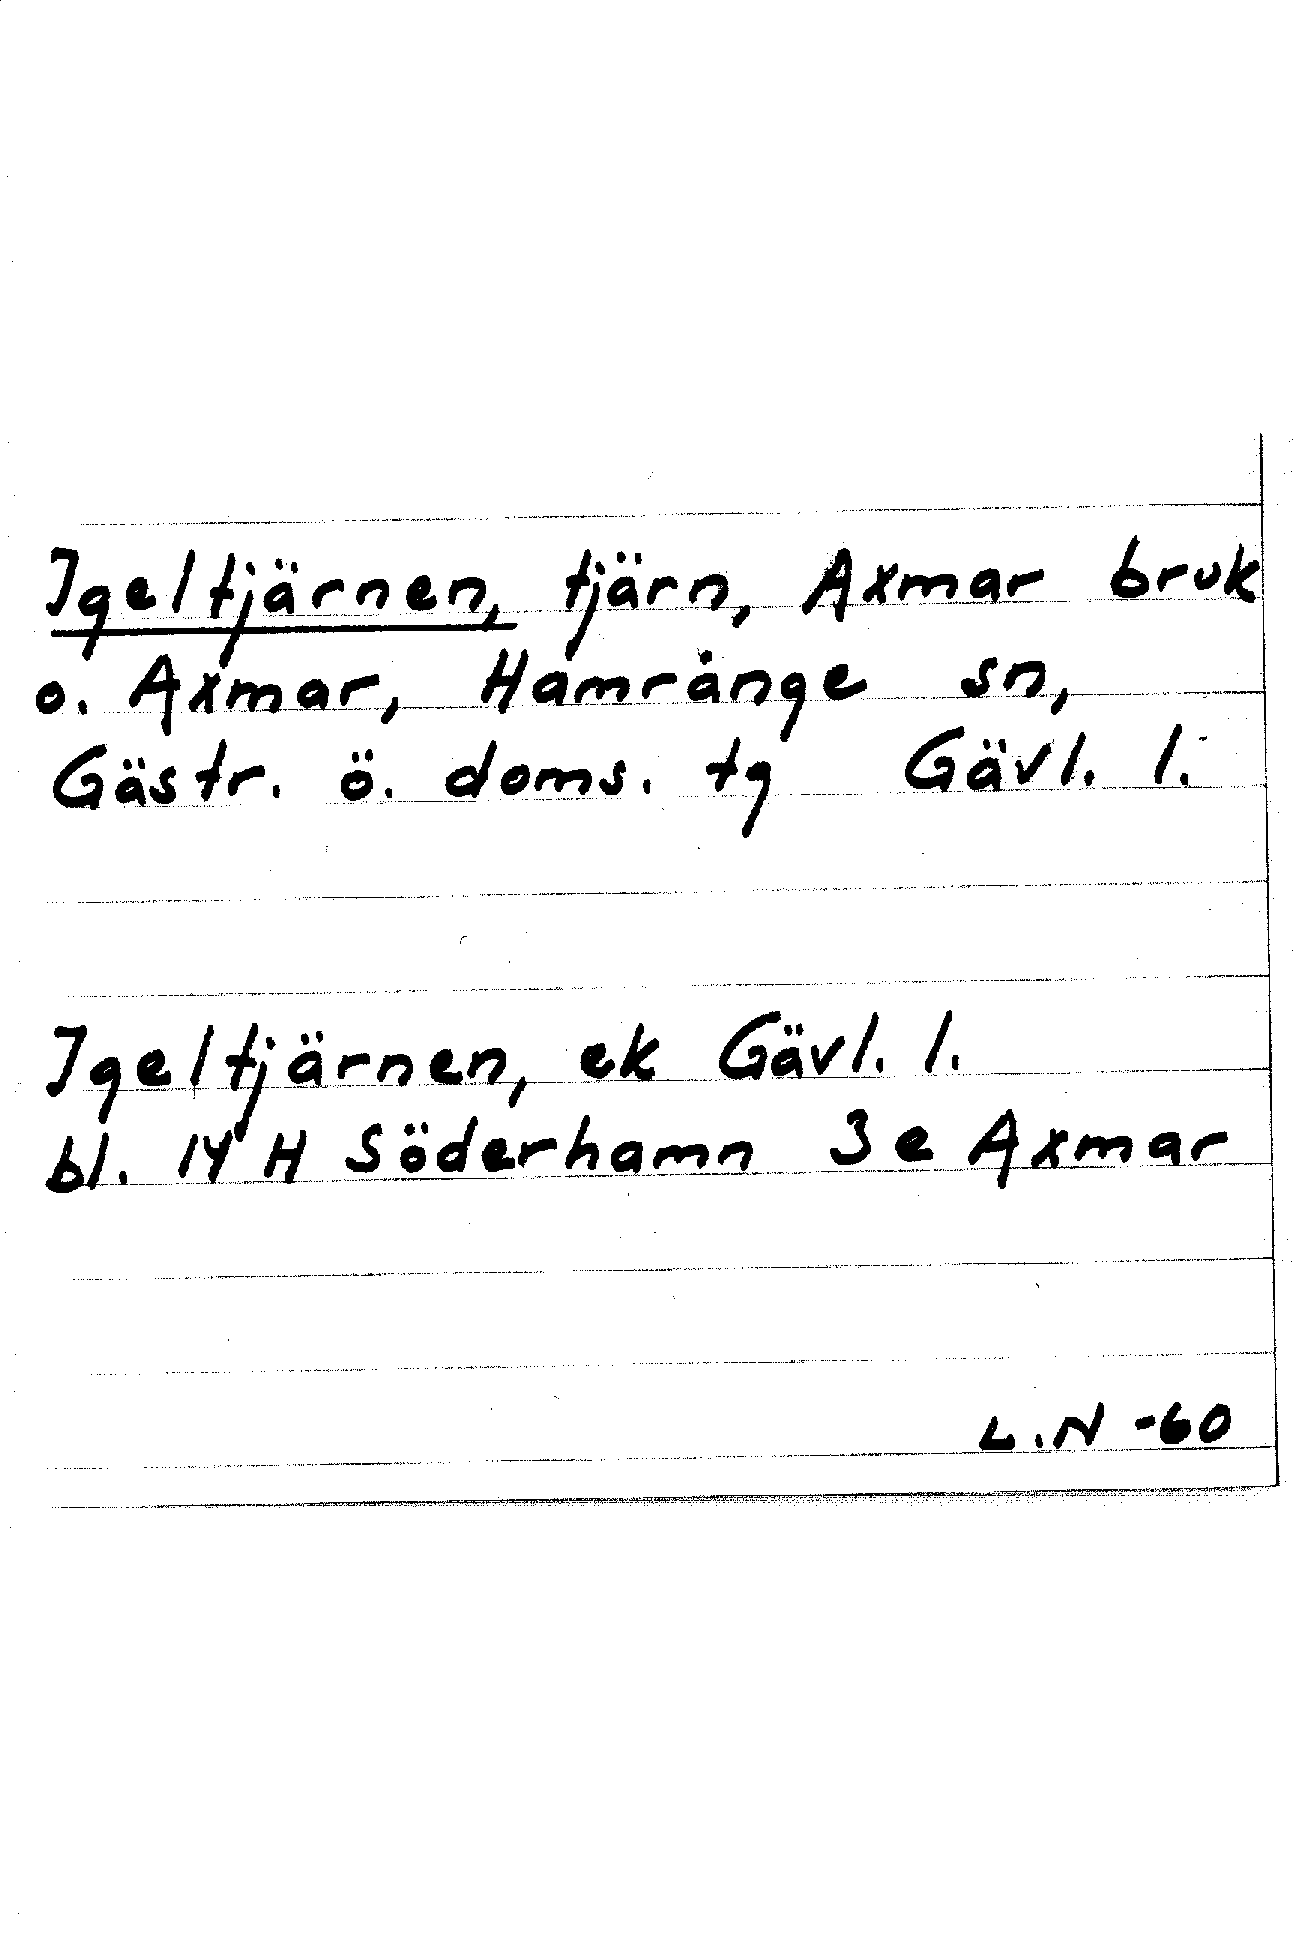 Igeltjärnen, tjärn, Axmar bruk
o. Axmar, Hamrånge sn,
Gästr. ö. doms. tg Gävl. l.
Igeltjärnen, ek Gävl. l.
bl. 14 H Söderhamn 3 e Axmar
L.N -60